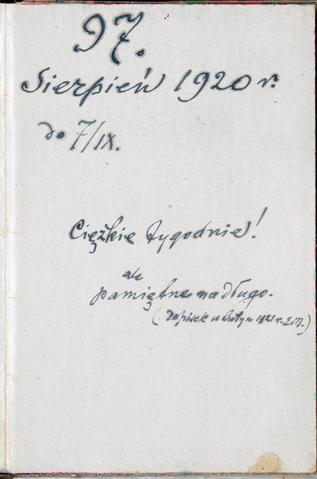 97.
Sierpień 1920 r.
do 7/IX.
Ciężkie tygodnie!
ale
pamiętne na długo.
(Dopisek w lutym 1921 r. E.R.)